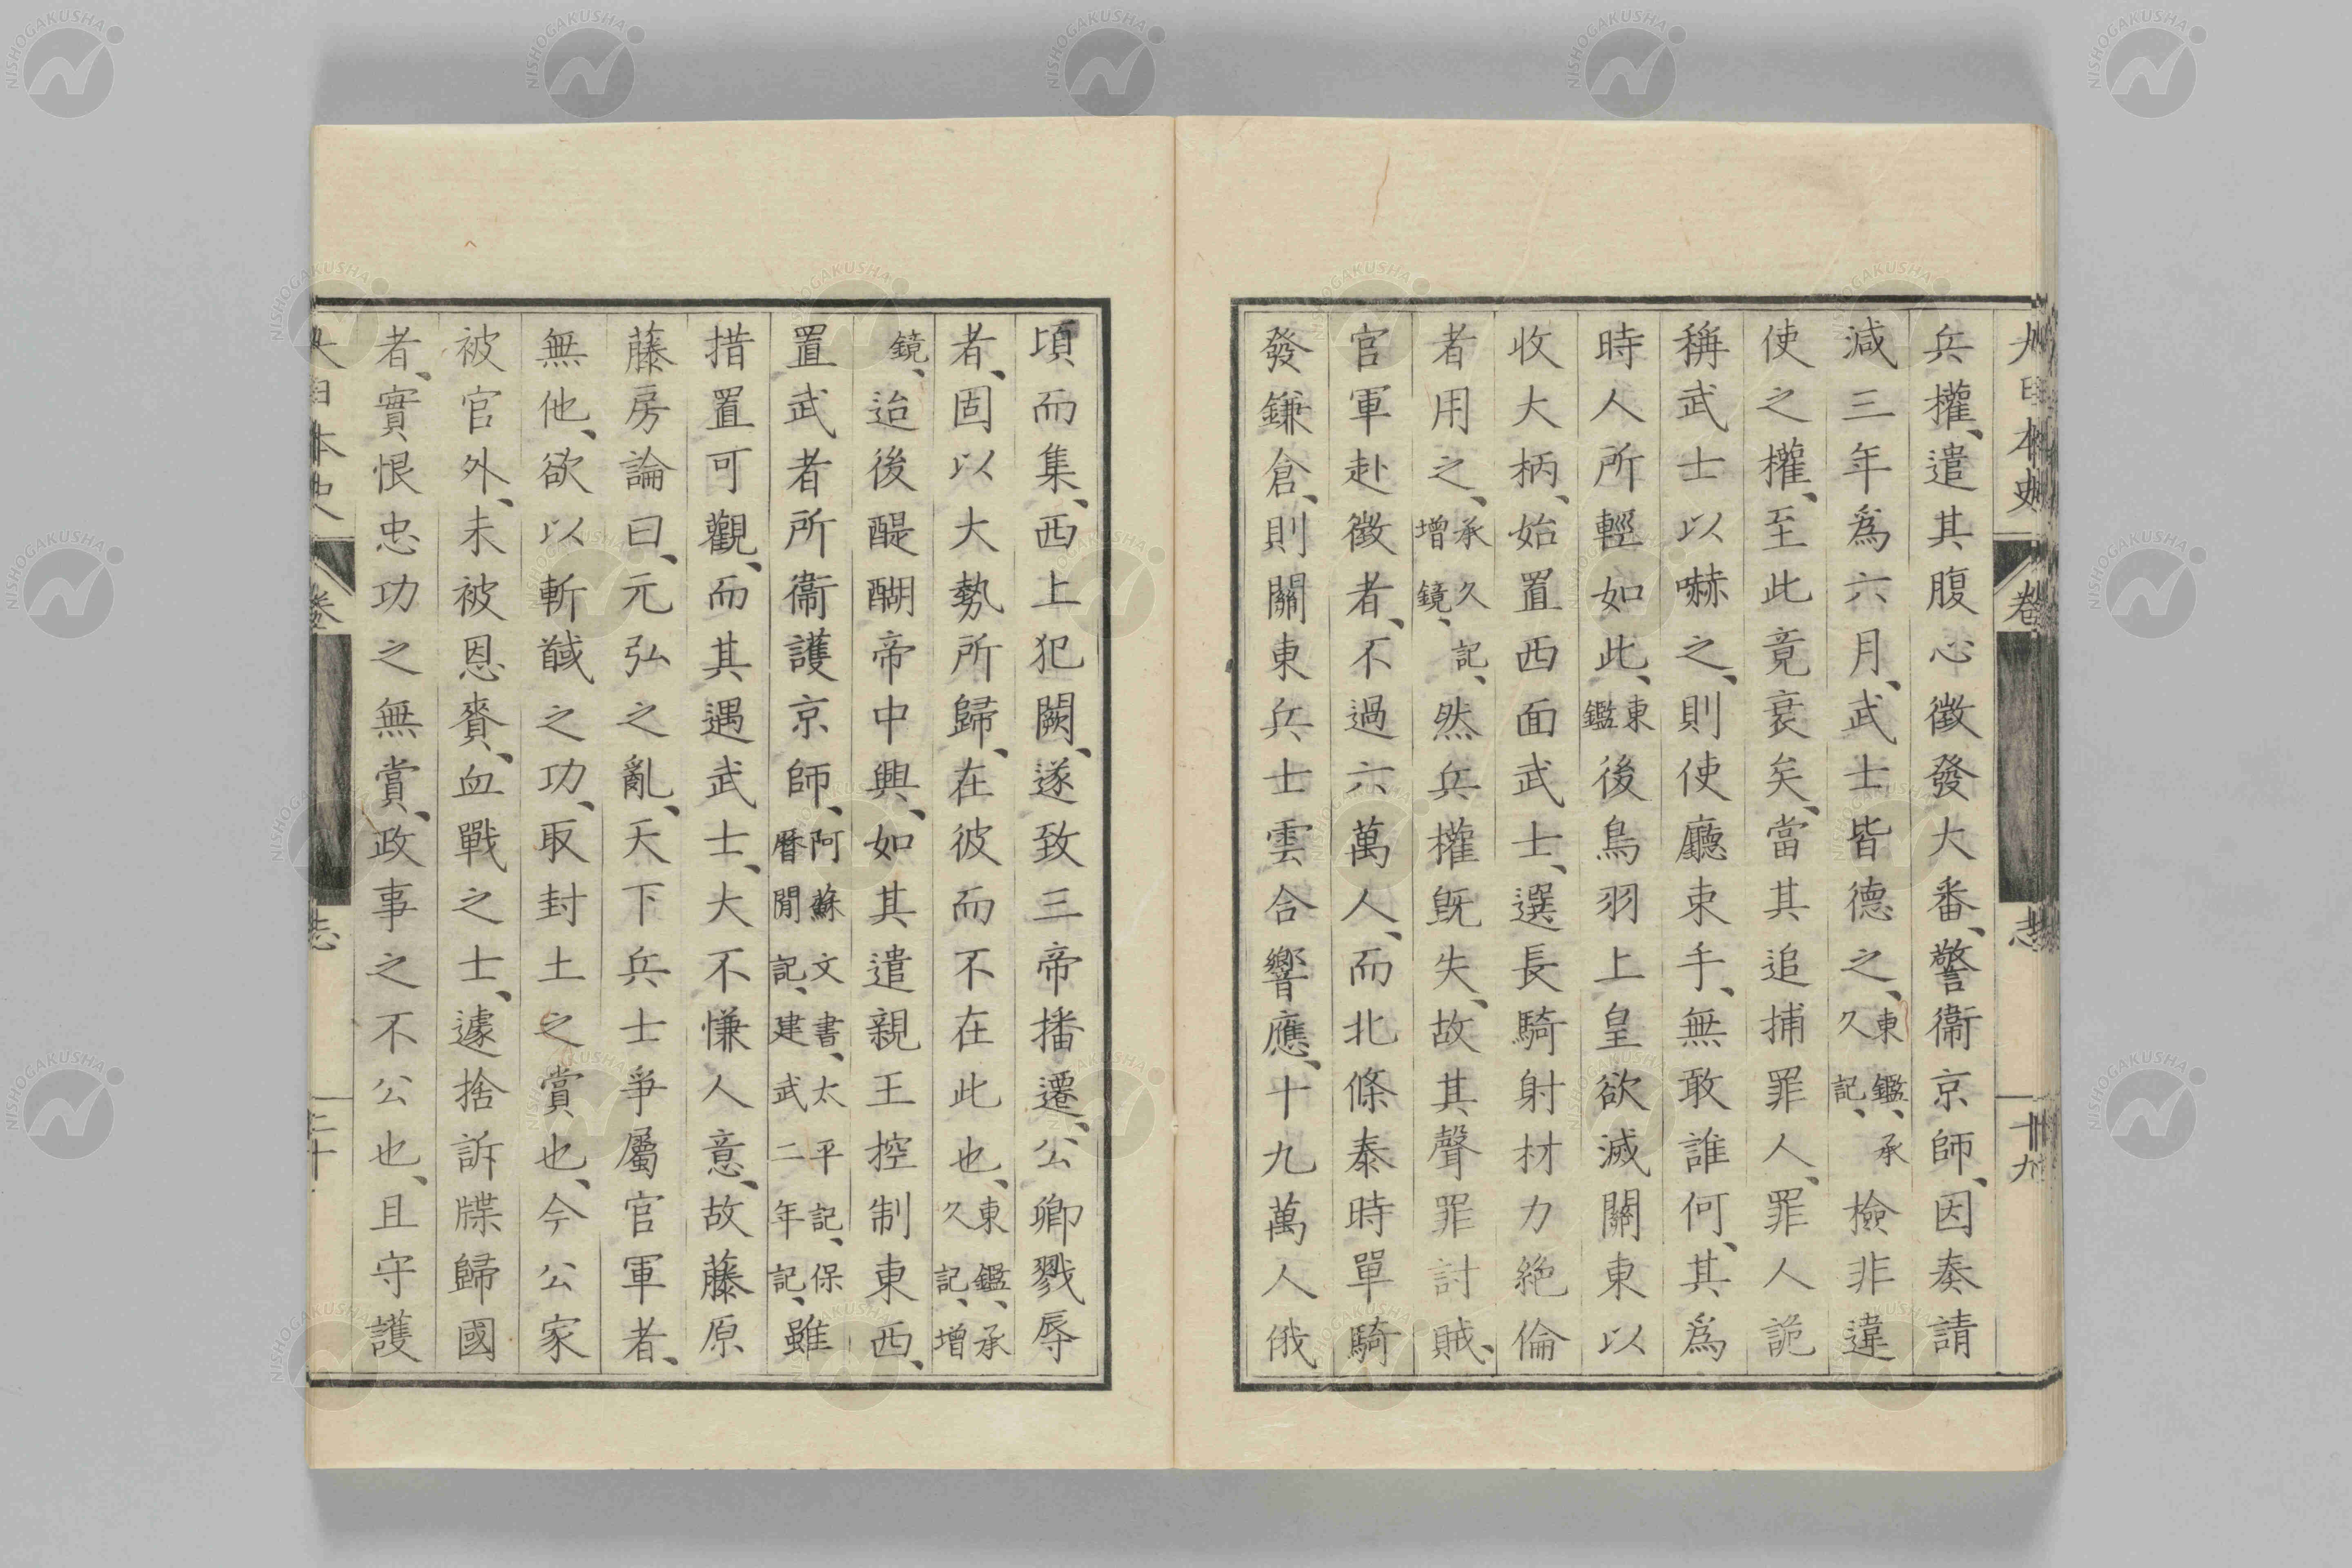 大日本史 卷 志 十九
兵權、遣其腹心徵發大番、警衞京師、因奏請
減三年爲六月、武士皆德之、東鑑、承久記、檢非違
使之權、至此竟衰矣、當其追捕罪人、罪人詭
稱武士以嚇之、則使廳束手、無敢誰何、其爲
時人所輕如此、東鑑後鳥羽上皇欲滅關東以
收大柄、始置西面武士、選長騎射材力絶倫
者用之、承久記、增鏡、然兵權旣失、故其聲罪討賊、
官軍赴徵者、不過六萬人、而北條泰時單騎
發鎌倉、則關東兵士雲合響應、十九萬人俄
頃而集、西上犯闕、遂致三帝播遷、公卿戮辱
者、固以大勢所歸、在彼而不在此也、東鑑、承久記、增
鏡、迨後醍醐帝中興、如其遣親王控制東西、
置武者所衞護京師、阿蘇文書、太平記、保曆閒記、建武二年記、雖
措置可觀、而其遇武士、大不慊人意、故藤原
藤房論曰、元弘之亂、天下兵士爭屬官軍者、
無他、欲以斬馘之功、取封土之賞也、今公家
被官外、未被恩賚、血戰之士、遽捨訴牒歸國
者、實恨忠功之無賞、政事之不公也、且守護
大日本史 卷 志 二十
NISHOGAKUSHA